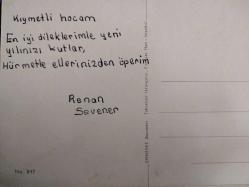 Kıymetli hocam
En iyi dileklerimle yeni
yılınızı kutlar,
Hürmetle ellerinizden öperim
Renan
Sevener
No. 847